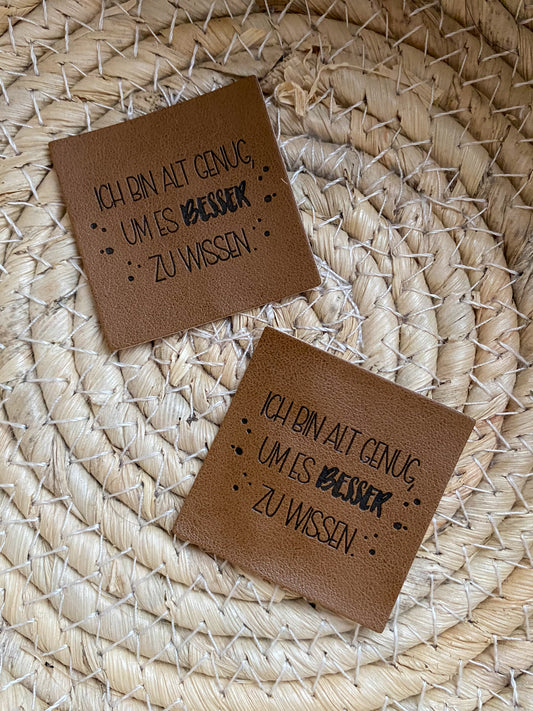 ICH BIN ALT GENUG,
UM ES BESSER
ZU WISSEN.
ICH BIN ALT GENUG,
UM ES BESSER
ZU WISSEN.